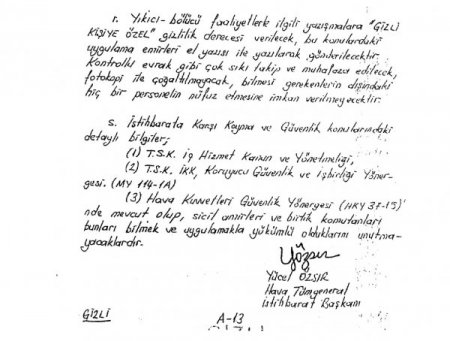 r. Yıkıcı-bölücü faaliyetlerle ilgili yazışmalara "GİZLİ
KİŞİYE ÖZEL" gizlilik derecesi verilecek, bu konulardaki
uygulama emirleri el yazısı ile yazılarak gönderilecektir.
Kontrollu evrak gibi çok sıkı takip ve muhafaza edilecek,
fotokopi ile çoğaltılmayacak, bilmesi gerekenlerin dışındaki
hiç bir personelin nüfuz etmesine imkan verilmeyecektir.
s. İstihbarata Karşı Koyma ve Güvenlik konularındaki
detaylı bilgiler;
(1) T.S.K. İç Hizmet Kanun ve Yönetmeliği,
(2) T.S.K. İKK, Koruyucu Güvenlik ve işbirliği Yöner-
gesi. (MY 114-1A)
(3) Hava Kuvvetleri Güvenlik Yönergesi (HKY 37-15)'
nde mevcut olup, sicil amirleri ve birlik komutanları
bunları bilmek ve uygulamakla yükümlü olduklarını unutma-
yacaklardır.
Yücel ÖZSIR
Hava Tümgeneral
İstihbarat Başkanı
GİZLİ
A-13